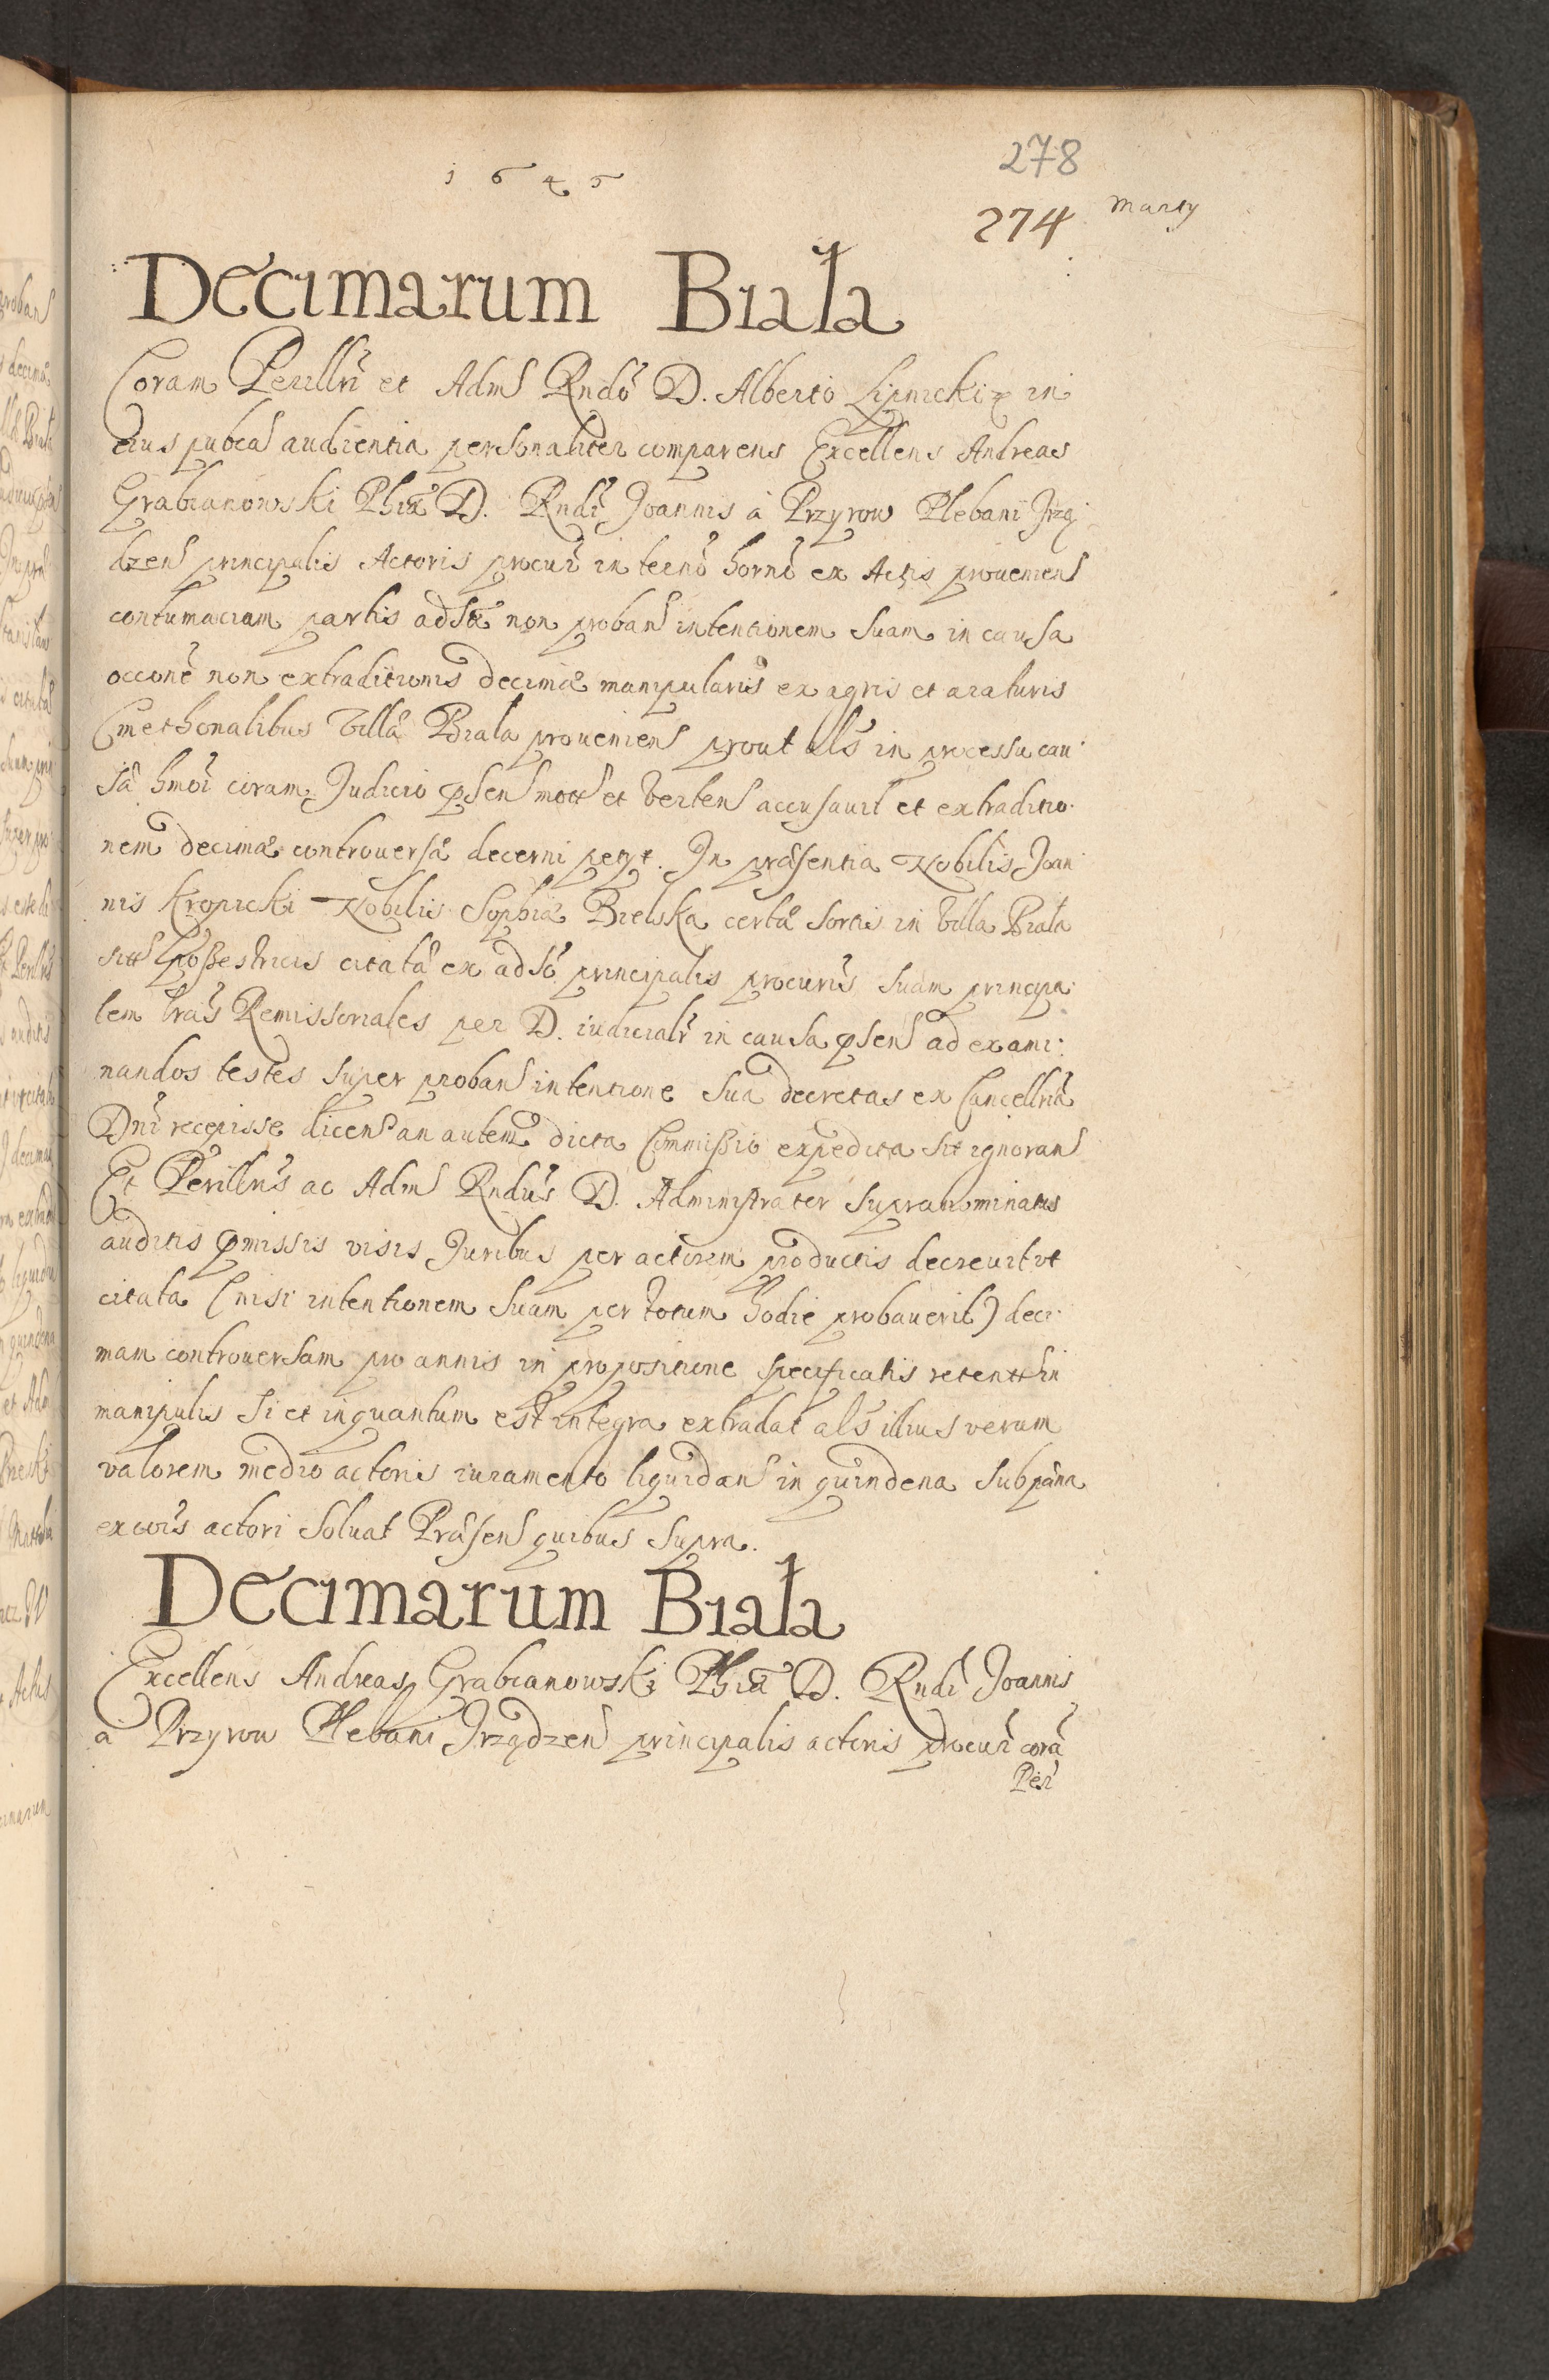 1645
278
274 Marty
Decimarum Biała
Coram Perillri et Adm Rndo D. Alberto Lipnicki in
eius pubca audientia personaliter comparens Excellens Andreas
Grabianowski Phiæ D. Rndi Joannis à Przyrow Plebani Jrzą
dzen principalis Actoris procur in termo horno ex Actis prouenien
contumaciam partis adsæ non proban intentionem suam in causa
occone non extraditionis decimæ manipularis ex agris et araturis
Cmethonalibus Villæ Biała prouenien prout als in processu cau
sæ hmoi coram Judicio psen mott et verten accusauit et extraditio
nem decimæ controuersæ decerni petyt. In præsentia Nobilis Joan
nis Kropicki Nobilis Sophiæ Bielska certæ sortis in Villa Biała
sitt possestricis citatæ ex adso principalis procuris suam principa
lem lras Remissoriales per D. iudicialr in causa psen ad exami
nandos testes super proban intentione sua decretas ex Cancellria
Dni recepisse dicen an autem dicta Commissio expedita sit ignoran
Et Perillris ac Adm Rndus D. Administrator supranominatus
auditis pmissis visis Juribus per actorem productis decreuit vt
citata (nisi intentionem suam per totum hodie probauerit) deci
mam controuersam pro annis in propositione specificatis retentt in
manipulis si et inquantum est integra extradat als illius verum
valorem medio actoris iuramento liquidan in quindena sub pæna
excois actori soluat Præsen quibus supra.
Decimarum Biała
Excellens Andreas Grabianowski Phiæ D. Rndi Joannis
à Przyrow Plebani Jrządzen principalis actoris procur corã
Per